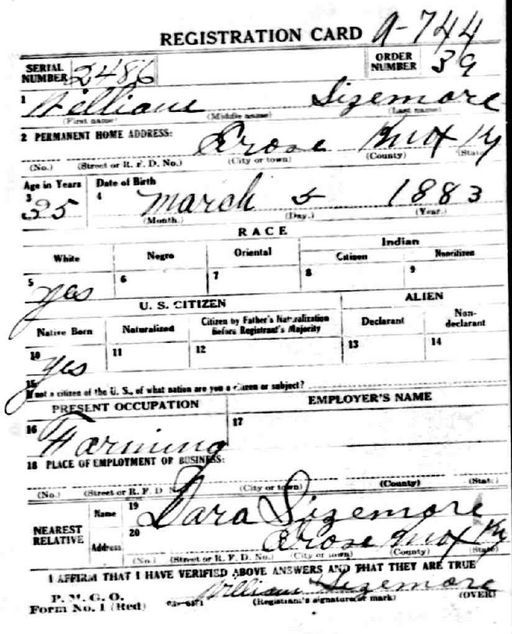 REGISTRATION CARD A-744
SERIAL NUMBER 2486 ORDER NUMBER 39
1 William Sizemore
(First name) (Middle name) (Last name)
2 PERMANENT HOME ADDRESS: Arose Knox Ky
(No.) (Street or R. F. D. No.) (City or town) (County) (State)
Age in Years Date of Birth
3 35 4 March 5 1883
(Month.) (Day.) (Year.)
RACE
White Negro Oriental Indian
Citizen Noncitizen
5 yes 6 7 8 9
U. S. CITIZEN ALIEN
Native Born Naturalized Citizen by Father's Naturalization before Registrant's Majority Declarant Non-declarant
10 yes 11 12 13 14
15 If not a citizen of the U. S., of what nation are you a citizen or subject?
PRESENT OCCUPATION EMPLOYER'S NAME
16 Farming 17
18 PLACE OF EMPLOYMENT OR BUSINESS:
(No.) (Street or R. F. D. No.) (City or town) (County) (State)
NEAREST RELATIVE Name 19 Sara Sizemore
Address 20 Arose Knox Ky
(No.) (Street or R. F. D. No.) (City or town) (County) (State)
I AFFIRM THAT I HAVE VERIFIED ABOVE ANSWERS AND THAT THEY ARE TRUE
P. M. G. O.
Form No. 1 (Red) William Sizemore
(Registrant's signature or mark) (OVER)